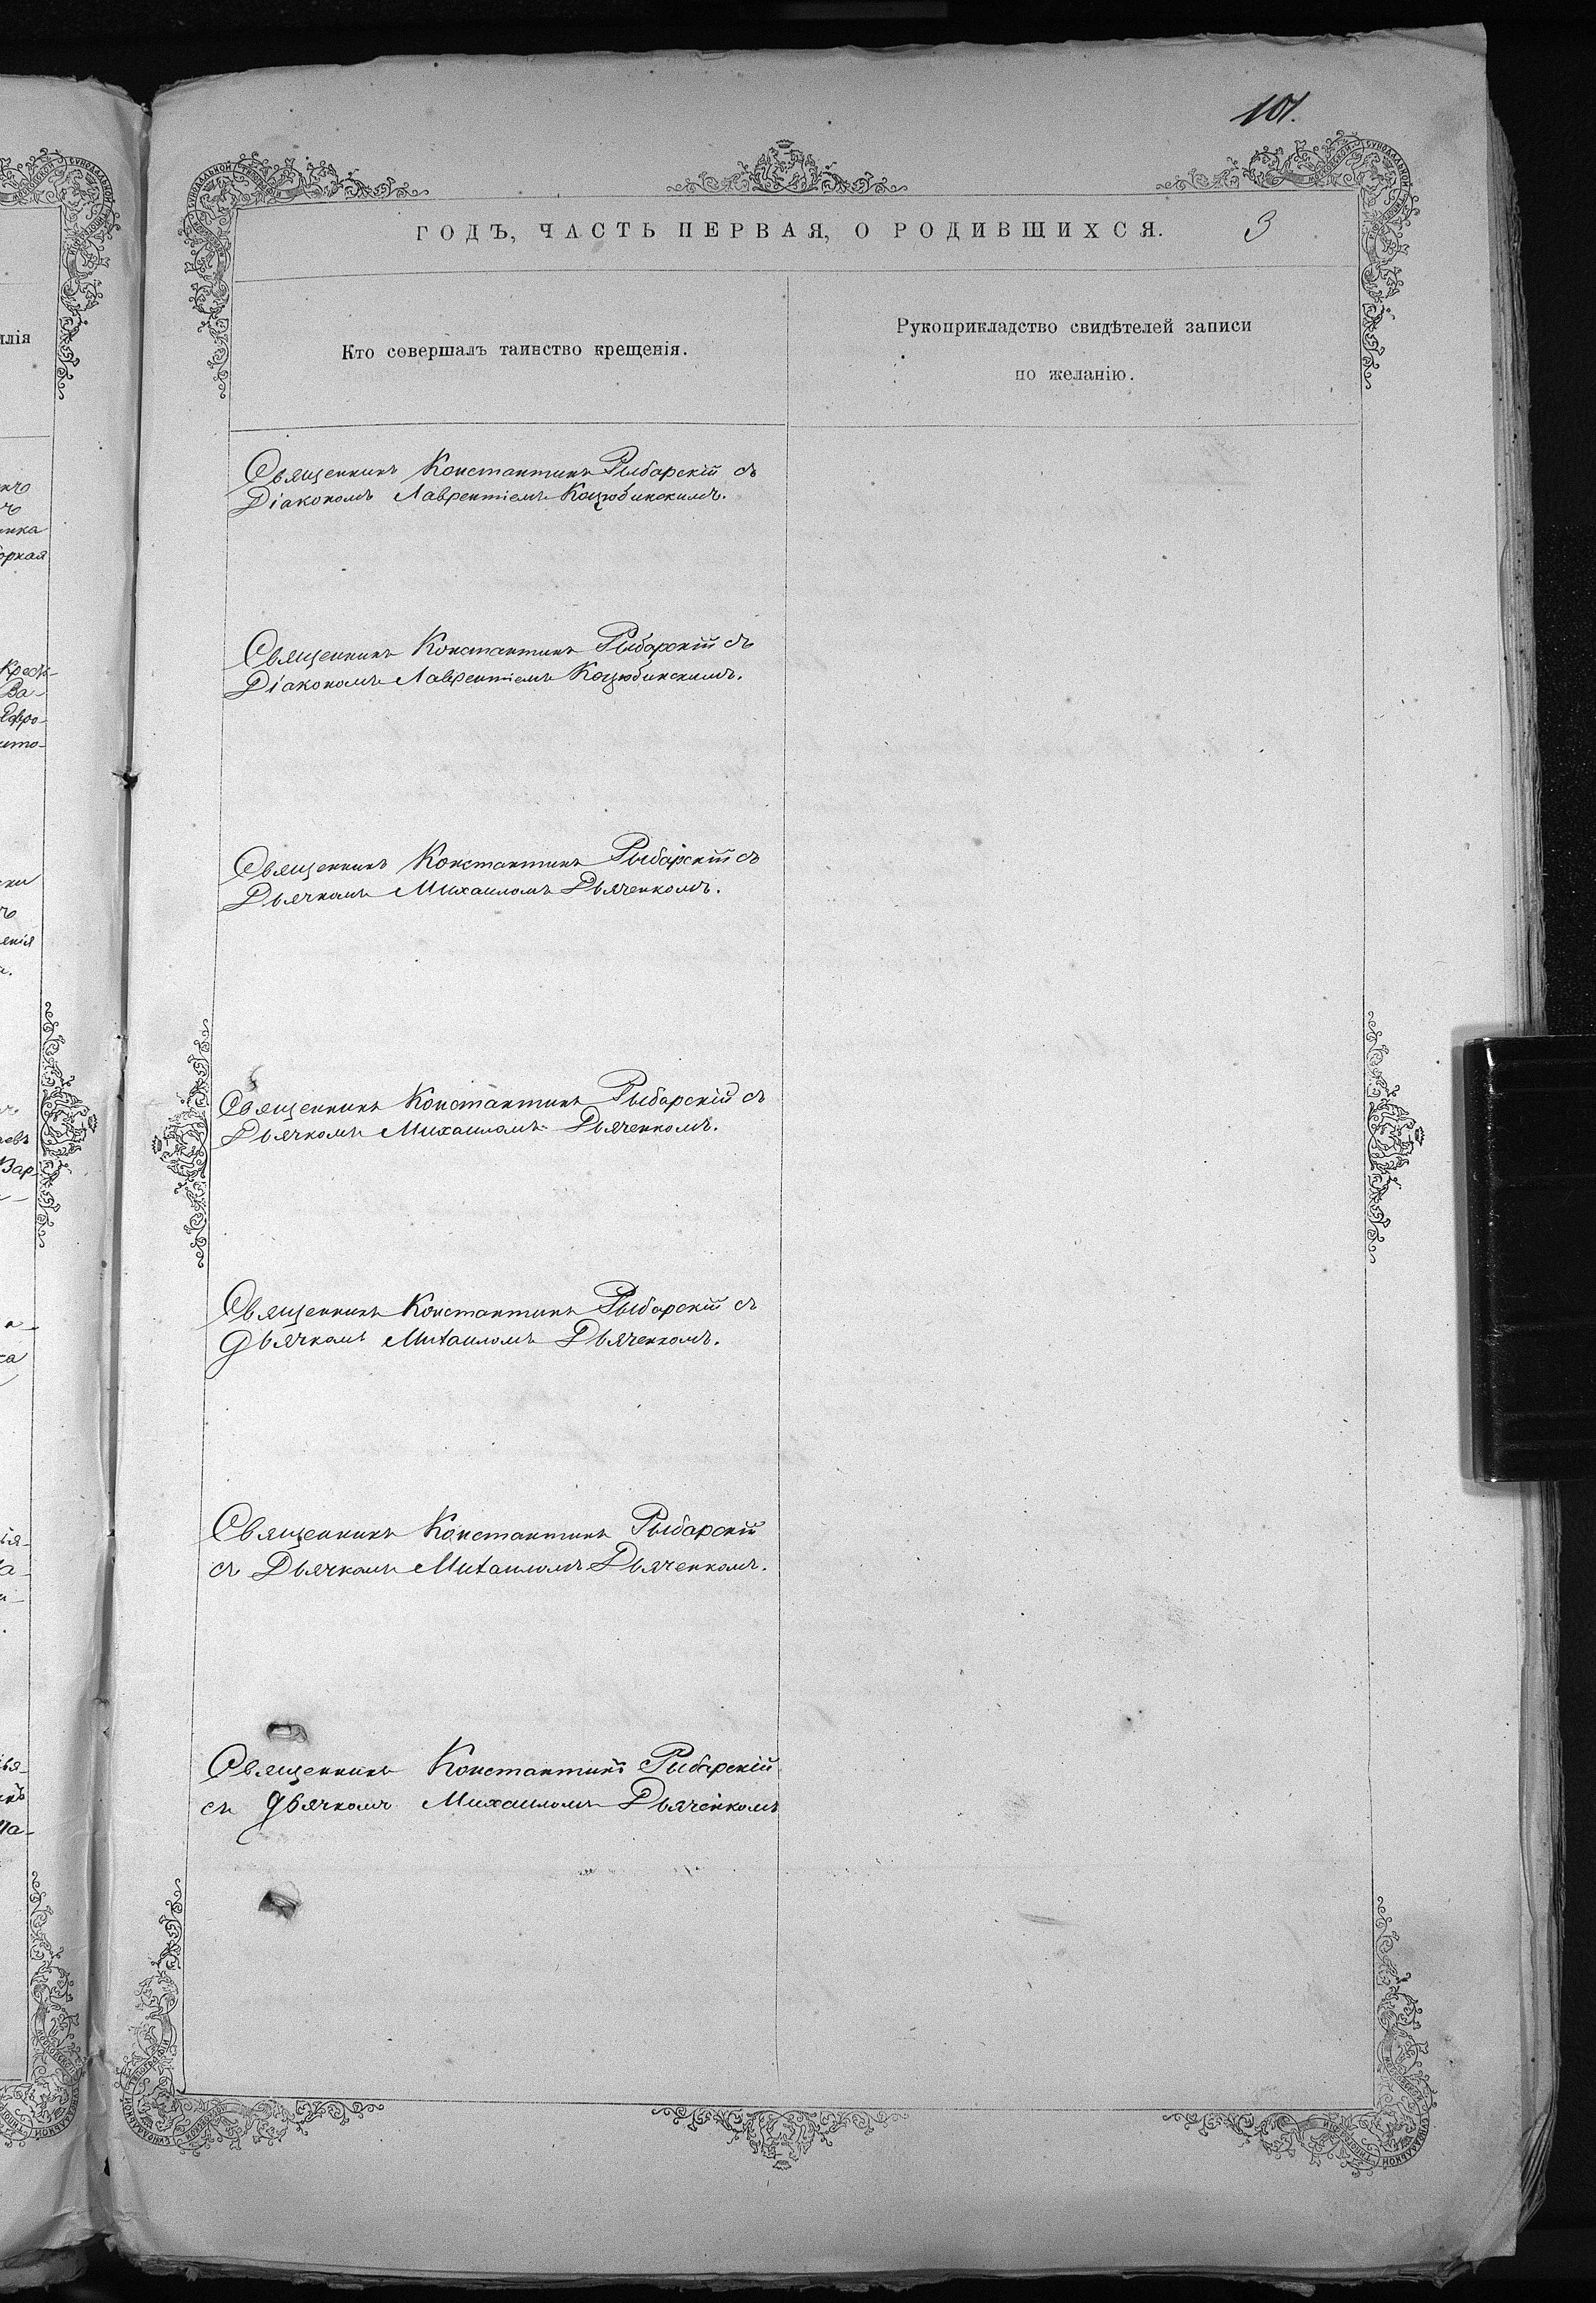 101.
ГОДЪ, ЧАСТЬ ПЕРВАЯ, О РОДИВШИХСЯ. 3
Кто совершалъ таинство крещенія.
Рукоприкладство свидѣтелей записи
по желанію.
Священникъ Константинъ Рыбарскій съ
Діакономъ Лаврентіемъ Коцюбинскимъ.
Священникъ Константинъ Рыбарскій съ
Діакономъ Лаврентіемъ Коцюбинскимъ.
Священникъ Константинъ Рыбарскій съ
Дьячкомъ Михаиломъ Дьяченкомъ.
Священникъ Константинъ Рыбарскій съ
Дьячкомъ Михаиломъ Дьяченкомъ.
Священникъ Константинъ Рыбарскій съ
дьячкомъ Михаиломъ Дьяченкомъ.
Священникъ Константинъ Рыбарскій
съ Дьячкомъ Михаиломъ Дьяченкомъ.
Священникъ Константинъ Рыбарскій
съ дьячкомъ Михаиломъ Дьяченкомъ